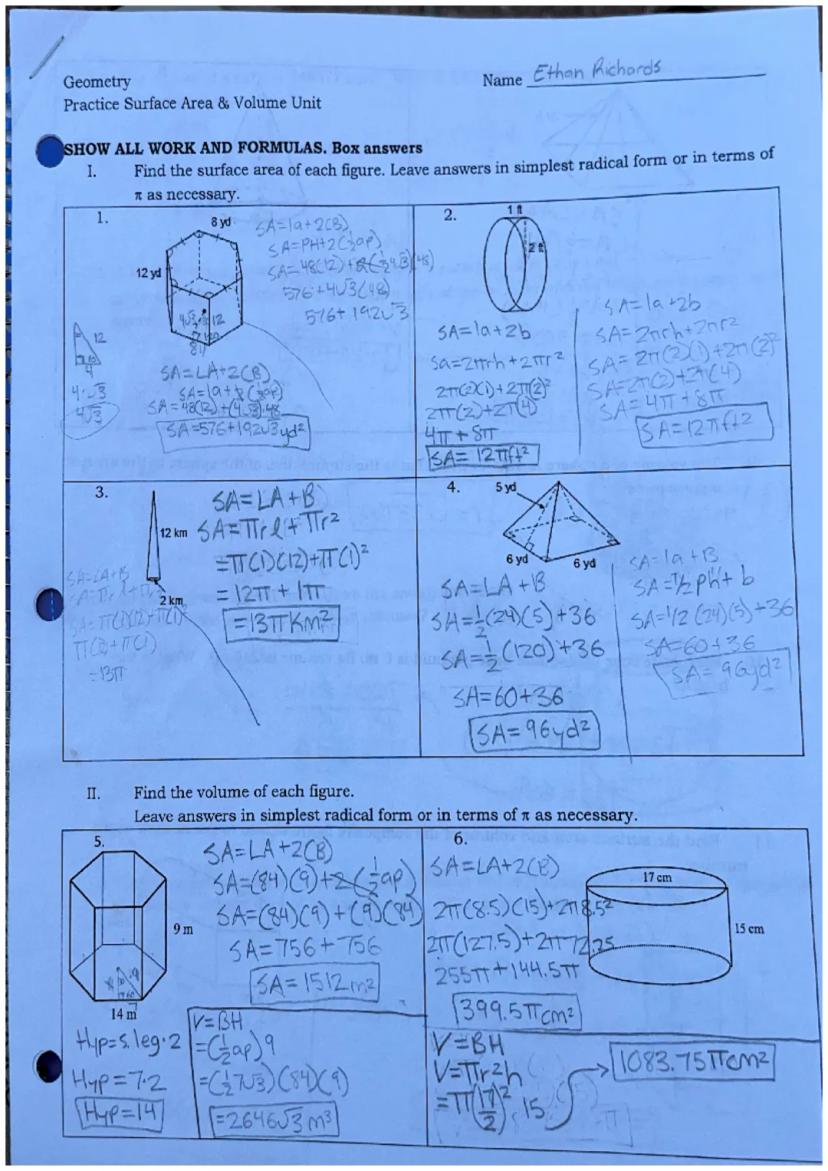 Geometry
Name Ethan Richards
Practice Surface Area & Volume Unit
SHOW ALL WORK AND FORMULAS. Box answers
I. Find the surface area of each figure. Leave answers in simplest radical form or in terms of
π as necessary.
1.
8 yd
12 yd
SA=la+2(B)
SA=PH+2(½ap)
SA=48(12)+2(½4√3)(48)
576+4√3(48)
576+192√3
12
4
4·√3
4√3
SA=LA+2(B)
SA=48(12)+(4√3)48
SA=576+192√3yd²
2.
1 ft
2 ft
SA=la+2b
Sa=2πrh+2πr²
2π(2)(1)+2π(2)²
2π(2)+2π(4)
4π+8π
SA=12πft²
SA=la+2b
SA=2πrh+2πr²
SA=2π(2)(1)+2π(2)²
SA=2π(2)+2π(4)
SA=4π+8π
SA=12πft²
3.
12 km
2 km
SA=LA+B
SA=πrl+πr²
=π(1)(12)+π(1)²
=12π+1π
=13πKm²
SA=LA+B
SA=πrl+πr²
SA=π(1)(12)+π(1)²
=13π
4.
5 yd
6 yd
6 yd
SA=LA+B
SA=½(24)(5)+36
SA=½(120)+36
SA=60+36
SA=96yd²
SA=la+B
SA=½ph+b
SA=1/2(24)(5)+36
SA=60+36
SA=96yd²
II. Find the volume of each figure.
Leave answers in simplest radical form or in terms of π as necessary.
5.
9 m
14 m
SA=LA+2(B)
SA=(84)(9)+2(½ap)
SA=(84)(9)+(9)(84)
SA=756+756
SA=1512m²
Hyp=s.leg·2
Hyp=7·2
Hyp=14
V=BH
=(½ap)9
=(½7√3)(84)(9)
=2646√3m³
6.
17 cm
15 cm
SA=LA+2(B)
2π(8.5)(15)+2π8.5²
2π(127.5)+2π72.25
255π+144.5π
399.5πcm²
V=BH
V=πr²h
=π(17/2)²·15
1083.75πcm²